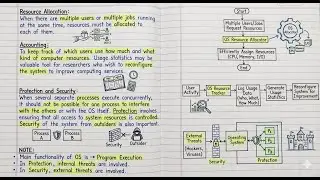 Resource Allocation:
When there are multiple users or multiple jobs running
at the same time, resources must be allocated to
each of them.
Accounting:
To keep track of which users use how much and what
kind of computer resources. Usage statistics may be
valuable tool for researchers who wish to reconfigure
the system to improve computing services.
Protection and Security:
When several separate processes execute concurrently,
it should not be possible for one process to interfere
with the others or with the OS itself. Protection involves
ensuring that all access to system resources is controlled.
Security of the system from outsiders is also important.
Process A
Process B
NOTE:
• Main functionality of OS is → Program Execution.
• In Protection, internal threats are involved.
• In Security, external threats are involved.
Start
Multiple Users/Jobs
Request Resources
OS Resource Allocator
Efficiently Assign Resources
(CPU, Memory, I/O)
End
User
Activity
OS Resource
Tracker
Log Usage
Data
(Who, What,
How Much)
Generate
Usage
Statistics
Reconfigure
System for
Improvement
External
Threats
(Hackers,
Viruses)
Security
Operating
System
P₁
P₂
Protection